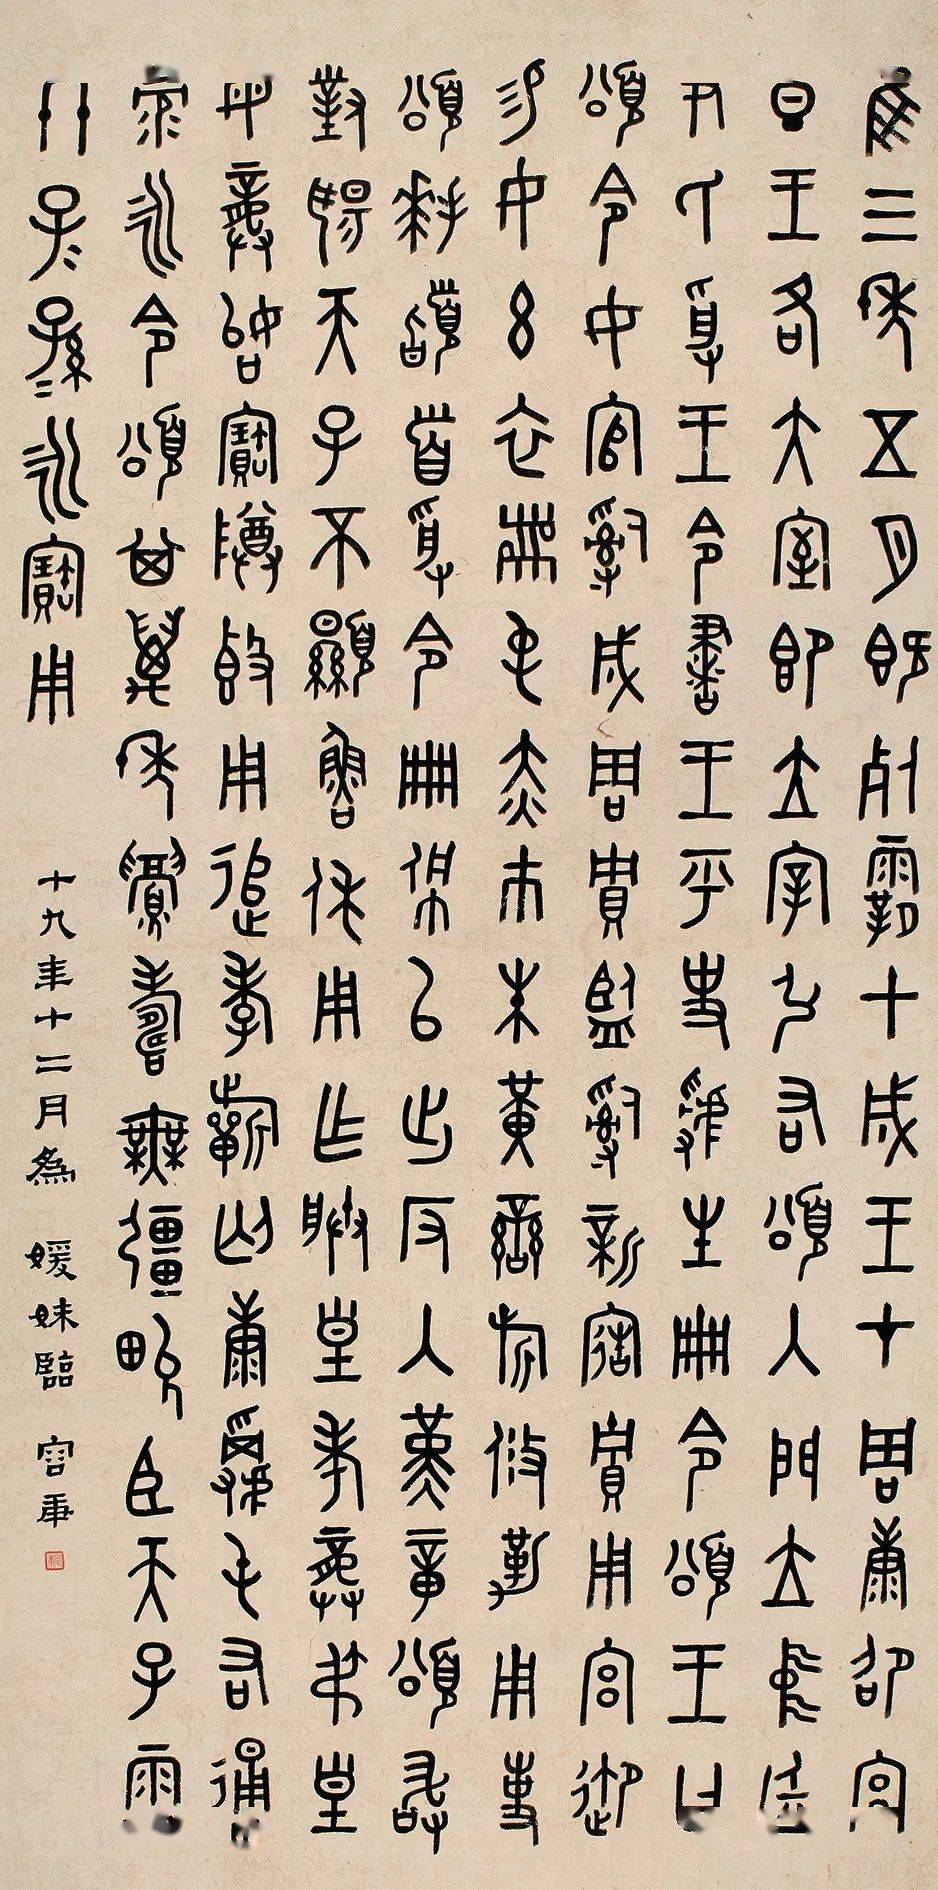 隹三年五月既死霸甲戌王才周康卲宮
旦王各大室即立宰弘右頌入門立中廷
尹氏受王令書王乎史虢生冊令頌王曰
頌令女官𤔲成周貯監𤔲新造貯用宮御
易女玄衣黹屯赤巿朱黃䜌旂攸勒用事
頌拜𩒨首受令冊佩以出反入堇章頌敢
對揚天子不顯魯休用乍朕皇考龏弔皇
母龏始寶尊𣪘用追孝祈匄康䚄屯右通
彔永令頌其萬年眉壽無疆畯臣天子霝
冬子〻孫〻永寶用
十九年十二月為 媛妹臨 容庚